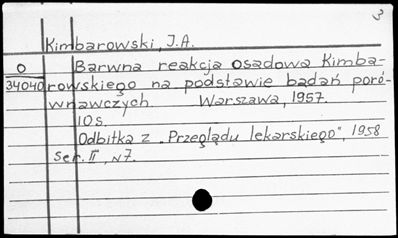 3
Kimbarowski, J.A.
O Barwna reakcja osadowa Kimba-
34040 rowskiego na podstawie badań poró-
wnawczych Warszawa, 1957.
10 s.
Odbitka z „Przeglądu lekarskiego", 1958
Ser. II, N7.